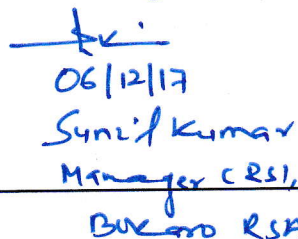 06/12/17
Sunil Kumar
Manager (RS),
Bokaro